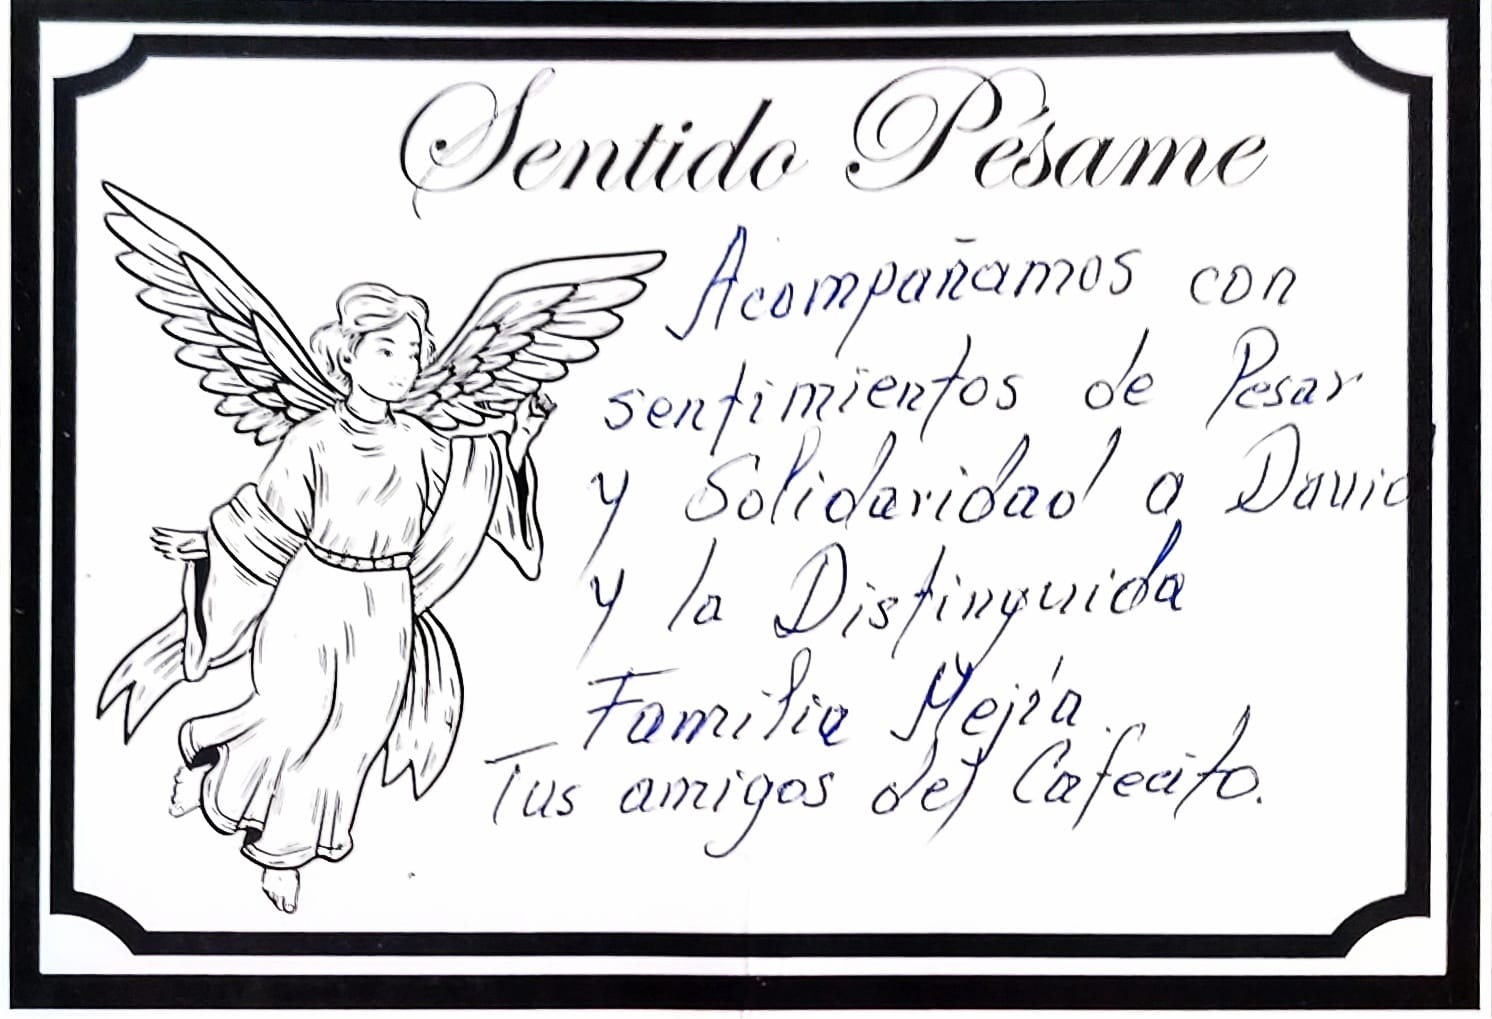 Sentido Pésame
Acompañamos con
sentimientos de Pesar
y Solidaridad a David
y la Distinguida
Familia Mejía.
Tus amigos del Cafecito.